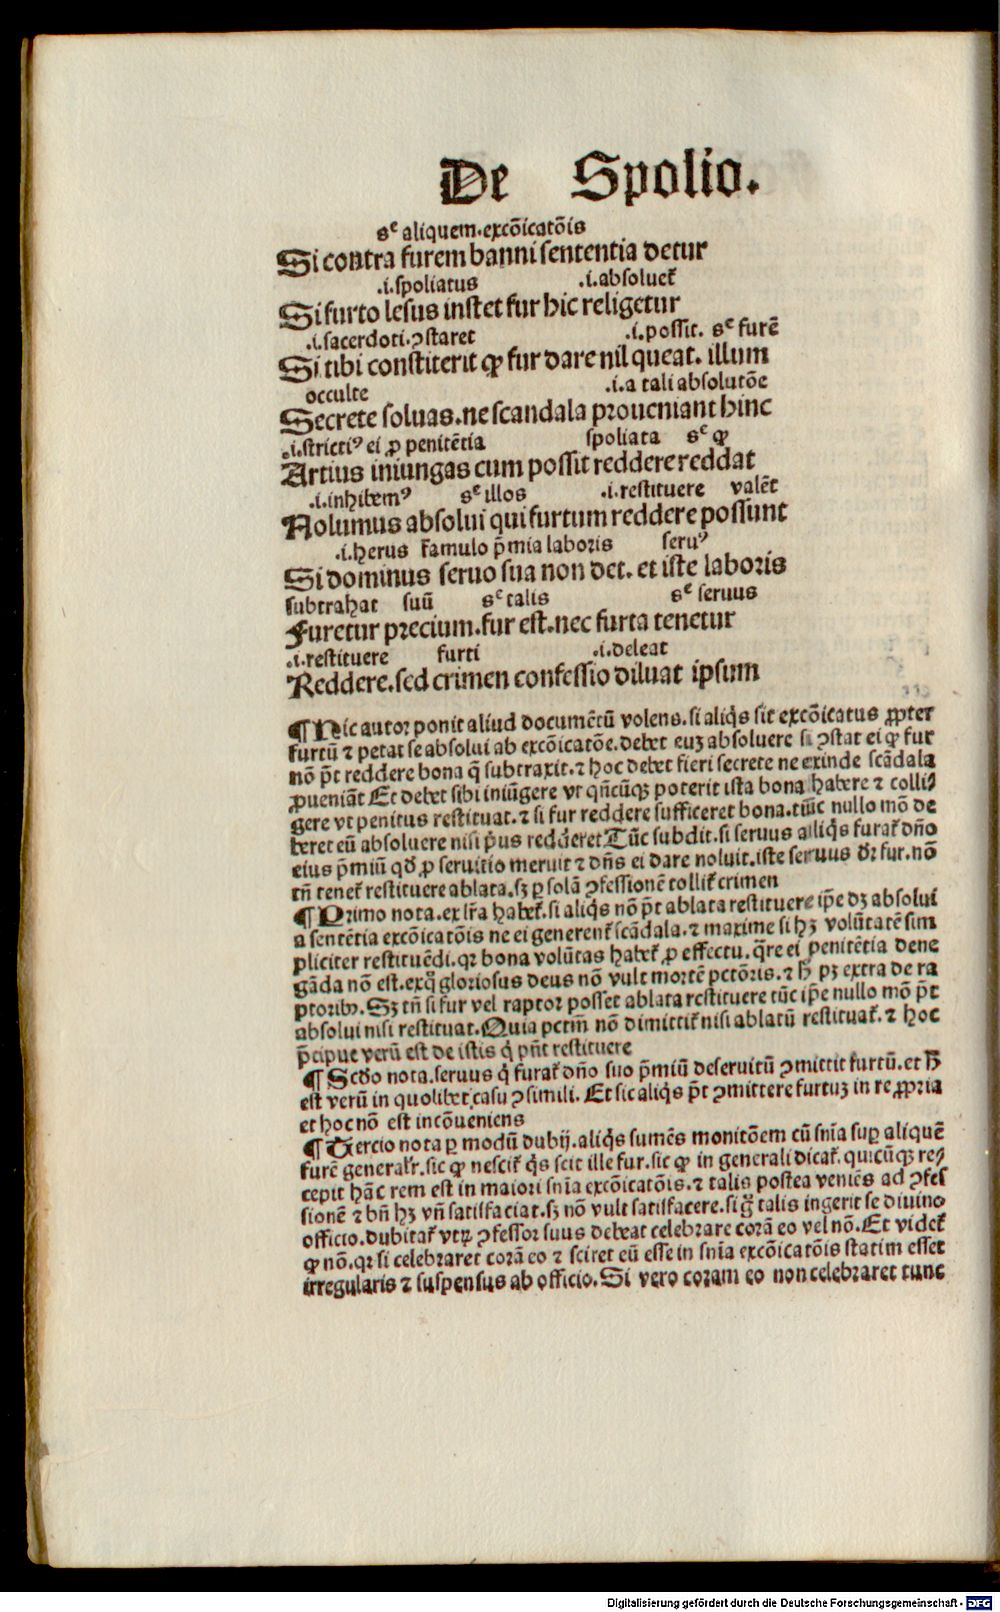 De Spolio.
sᶜ aliquem.excōicatōis
Si contra furem banni sententia detur
.i.spoliatus .i.absoluet᷑
Si furto lesus instet fur hic religetur
.i.sacerdoti.ꝯstaret .i.possit. sᶜ furē
Si tibi constiterit ꝙ fur dare nil queat. illum
occulte .i.a tali absolutōe
Secrete soluas.ne scandala proueniant hinc
.i.stricti⁹ ei ꝓ penitētia spoliata sᶜ ꝙ
Artius iniungas cum possit reddere reddat
.i.inhibem⁹ sᶜ illos .i.restituere valēt
Nolumus absolui qui furtum reddere possunt
.i.herus famulo p̄mia laboris seru⁹
Si dominus seruo sua non det. et iste laboris
subtrahat suū sᶜ talis sᶜ seruus
Furetur precium.fur est.nec furta tenetur
.i.restituere furti .i.deleat
Reddere.sed crimen confessio diluat ipsum
¶ Hic autor ponit aliud documētū volens.si aliq̇s sit excōicatus ꝓpter
furtū ⁊ petat se absolui ab excōicatōe.debet euꝫ absoluere si ꝯstat ei ꝙ fur
nō p̄t reddere bona q̄ subtraxit.⁊ hoc debet fieri secrete ne exinde scādala
ꝓueniāt Et debet sibi iniūgere vt qn̄cūqꝫ poterit ista bona habere ⁊ colli⸗
gere vt penitus restituat.⁊ si fur reddere sufficeret bona.tūc nullo mō de
beret eū absoluere nisi p̄us redderet Tūc subdit.si seruus aliq̇s furat᷑ dn̄o
eius p̄miū qd̄ ꝓ seruitio meruit ⁊ dn̄s ei dare noluit.iste seruus dr̄ fur.nō
tn̄ tenet᷑ restituere ablata.sꝫ ꝑ solā ꝯfessionē tollit᷑ crimen
¶ Primo nota.ex lr̄a habet᷑.si aliq̇s nō p̄t ablata restituere ip̄e dꝫ absolui
a sentētia excōicatōis ne ei generent᷑ scādala.⁊ maxime si hꝫ volūtatē sim
pliciter restituēdi.qꝛ bona volūtas habet᷑ ꝓ effectu.q̄re ei penitētia dene
gāda nō est.exq̇ gloriosus deus nō vult mortē pctōris.⁊ h̄ pꝫ extra de ra
ptoribꝰ. Sꝫ tn̄ si fur vel raptor posset ablata restituere tūc ip̄e nullo mō p̄t
absolui nisi restituat. Quia pctm̄ nō dimittit᷑ nisi ablatū restituat᷑.⁊ hoc
p̄cipue verū est de istis q̇ pn̄t restituere
¶ Scd̄o nota.seruus q̇ furat᷑ dn̄o suo p̄miū deseruitū ꝯmittit furtū.et h̄
est verū in quolibet casu ꝯsimili. Et sic aliq̇s p̄t ꝯmittere furtuꝫ in re ꝓpria
et hoc nō est incōueniens
¶ Tercio nota ꝑ modū dubij.aliq̇s sumēs monitōem cū sn̄ia suꝑ aliquē
furē generalr̄.sic ꝙ nescit᷑ q̇s scit ille fur.sic ꝙ in generali dicat᷑.quicūqꝫ re⸗
cepit hāc rem est in maiori sn̄ia excōicatōis.⁊ talis postea veniēs ad ꝯfes
sionē ⁊ bn̄ hꝫ vn̄ satisfaciat.sꝫ nō vult satisfacere.si g̊ talis ingerit se diuino
officio.dubitat᷑ vtꝝ ꝯfessor suus debeat celebrare corā eo vel nō. Et videt᷑
ꝙ nō.qꝛ si celebraret corā eo ⁊ sciret eū esse in sn̄ia excōicatōis statim esset
irregularis ⁊ suspensus ab officio. Si vero coram eo non celebraret tunc
Digitalisierung gefördert durch die Deutsche Forschungsgemeinschaft - DFG